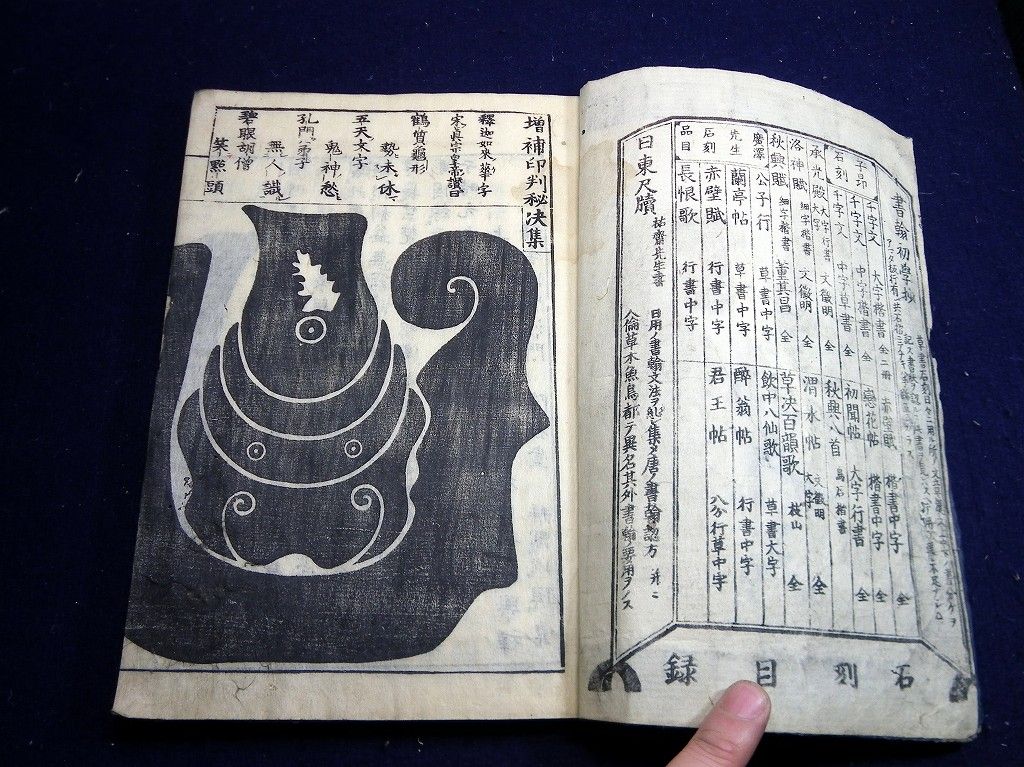 書翰初學抄
子昂
石刻
千字文 大字楷書 全二冊
千字文 中字楷書 全
千字文 中字草書 全
承光殿 大字行書 文徴明 全
洛神賦 細字楷書 文徴明 全
秋興賦 細字楷書 董其昌 全
廣澤
先生
石刻
品目
公子行 草書中字
蘭亭帖 草書中字
赤壁賦 行書中字
長恨歌 行書中字
赤壁賦 楷書中字 全
惠花帖 楷書中字 全
初聞帖 大字行書 全
秋興八首 烏石楷書
渭水帖 大字 文徴明 全
草决百韻歌 枝山 全
飲中八仙歌 草書大字
醉翁帖 行書中字
君王帖 八分行草中字
日東尺牘
日用ノ書翰文法ヲ悉集メ唐ノ書翰認方并ニ
人倫草木魚鳥都テ異名其外書翰要用ヲノス
石刻目録
增補印判秘决集
釋迦如來華字
宋眞宗皇帝讃曰
鶴質龜形
勢未休
五天文字
鬼神愁
孔門弟子
無人識
碧眼胡僧
笑點頭